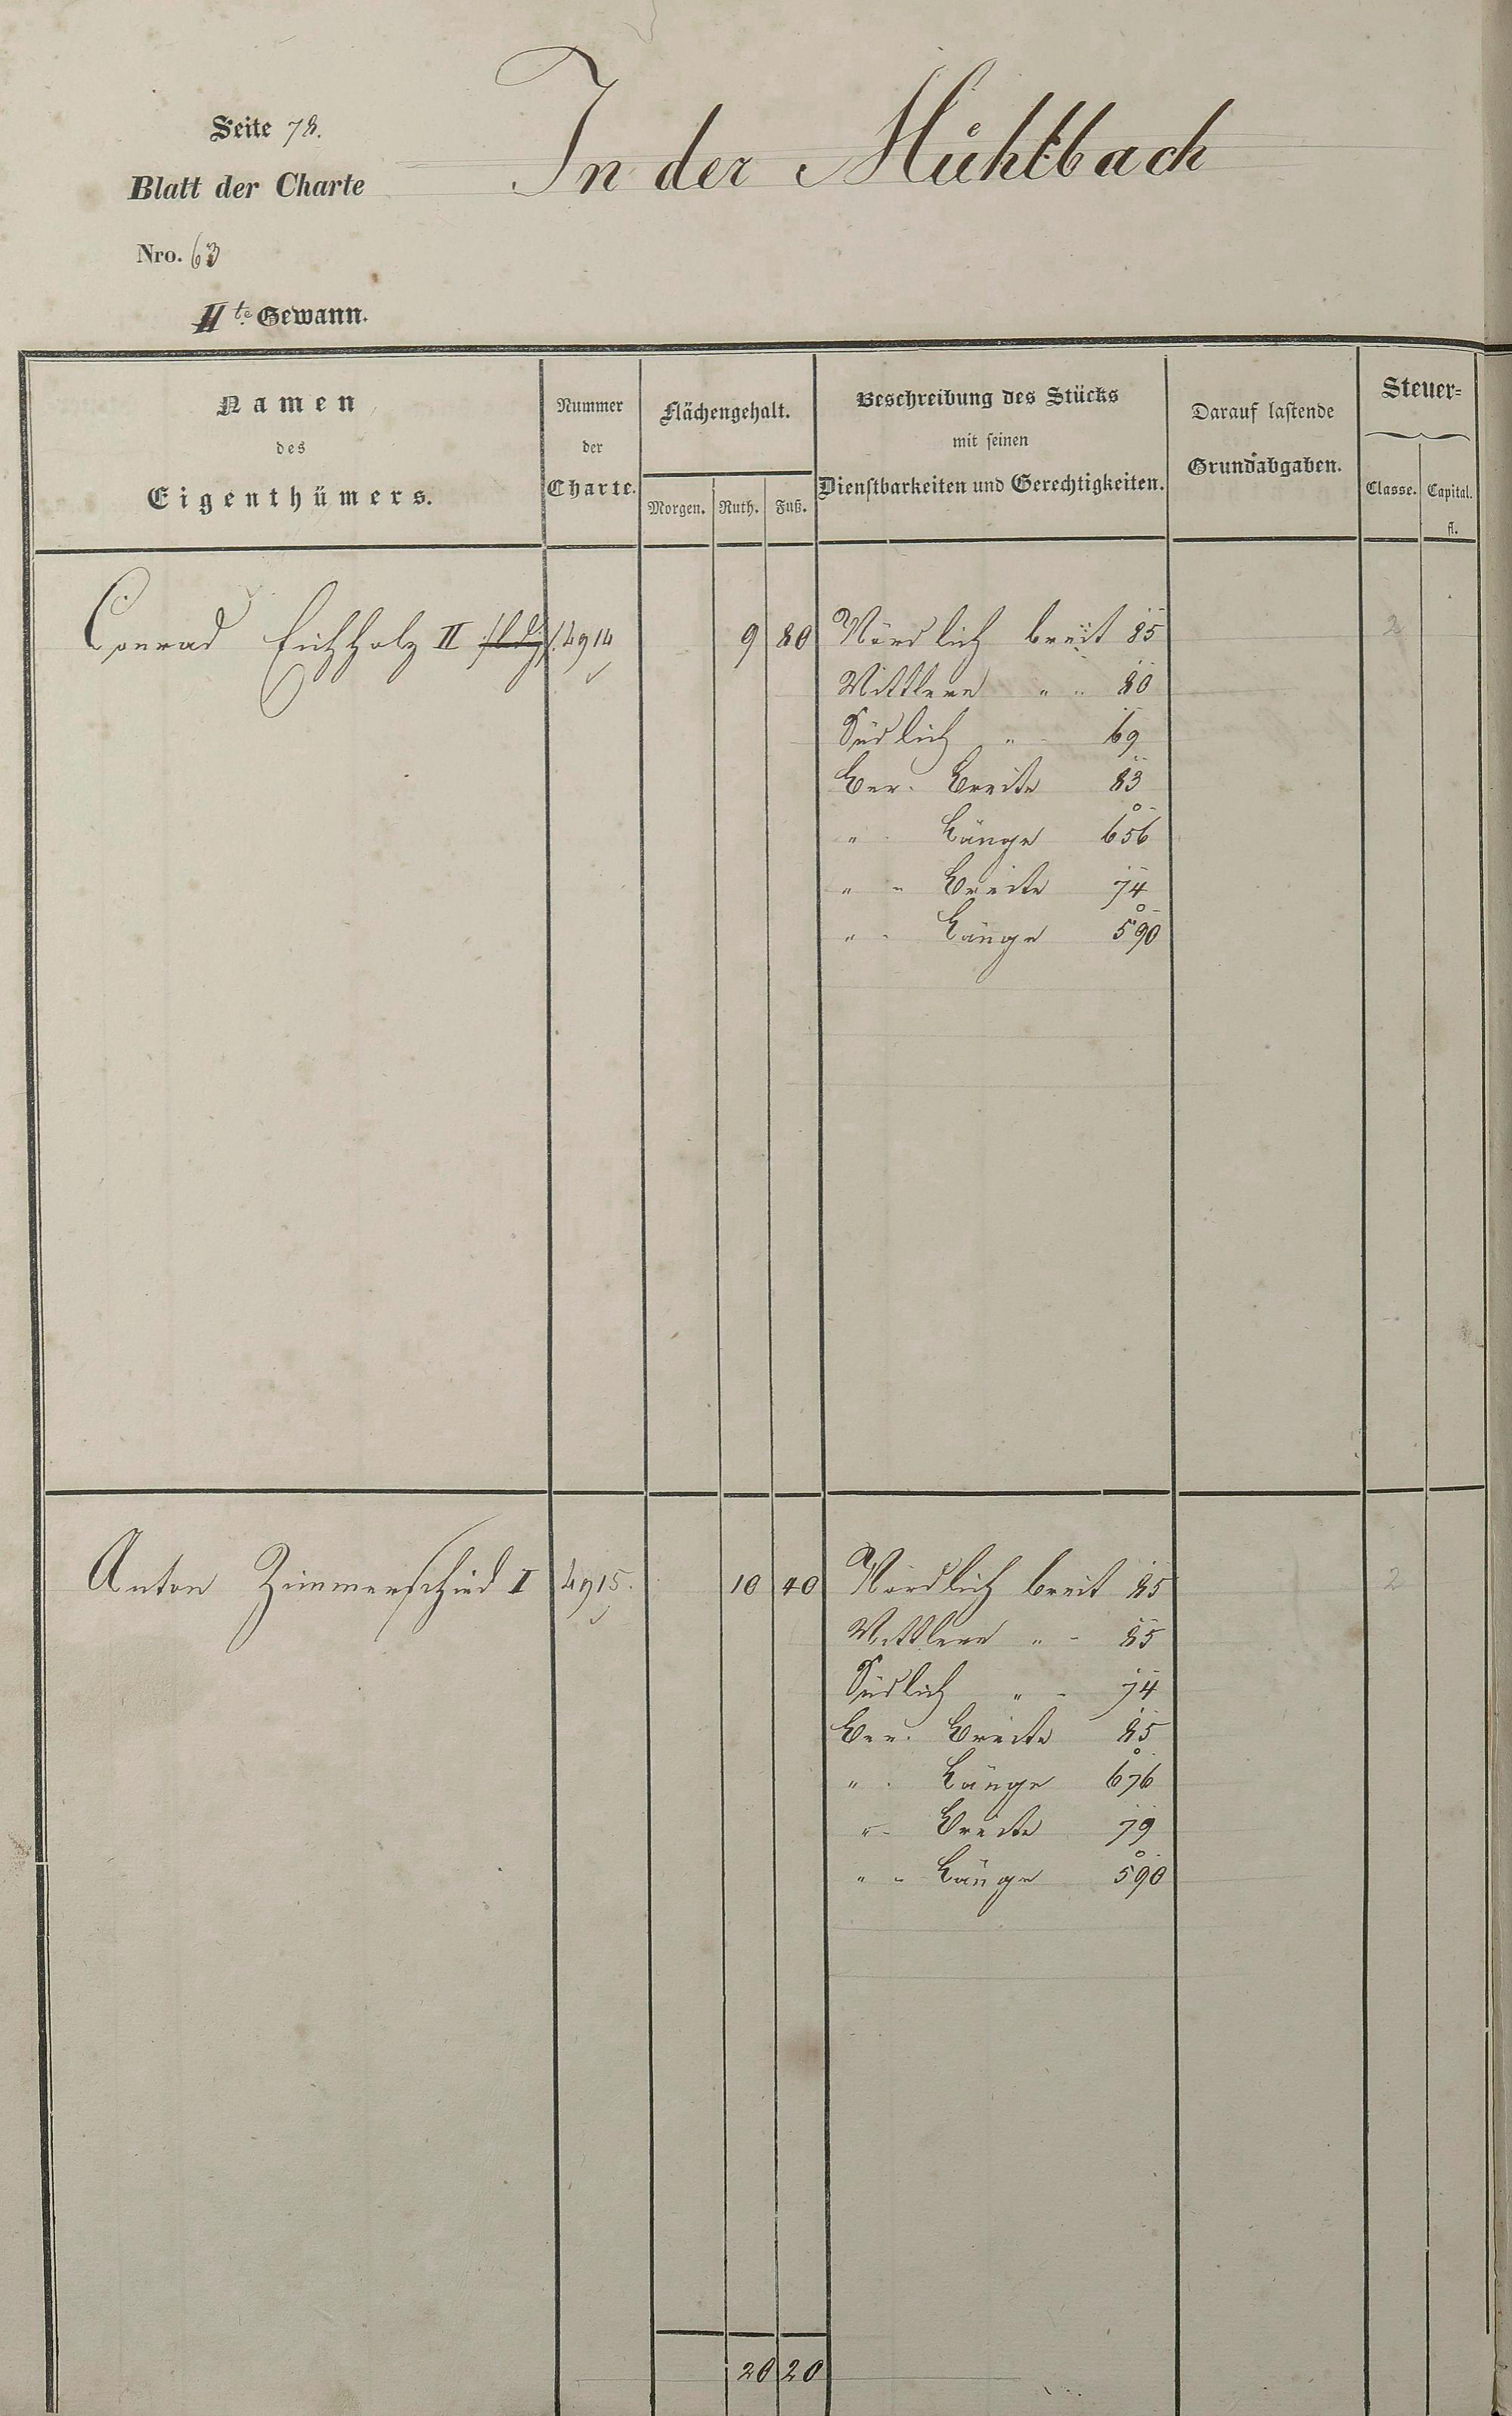 Seite 78.
In der Mühlbach
Blatt der Charte
Nro. 63
IIte Gewann.
Namen
des
Eigenthümers.
Nummer
der
Charte.
Flächengehalt.
Morgen. Ruth. Fuß.
Beschreibung des Stücks
mit seinen
Dienstbarkeiten und Gerechtigkeiten.
Darauf lastende
Grundabgaben.
Steuer-
Classe. Capital.
fl.
Conrad Eichholz II 4914 9 80 Nördlich breit 85 2
Mittlere " " 80
Südlich " 69
Ber. Breite 83
" Länge 656
" " Breite 74
" " Länge 590
Anton Zimmerschied I 4915. 10 40 Nördlich breit 85 2
Mittlere " " 85
Südlich " " 74
Ber. Breite 85
" Länge 676
" Breite 79
" " Länge 590
20 20